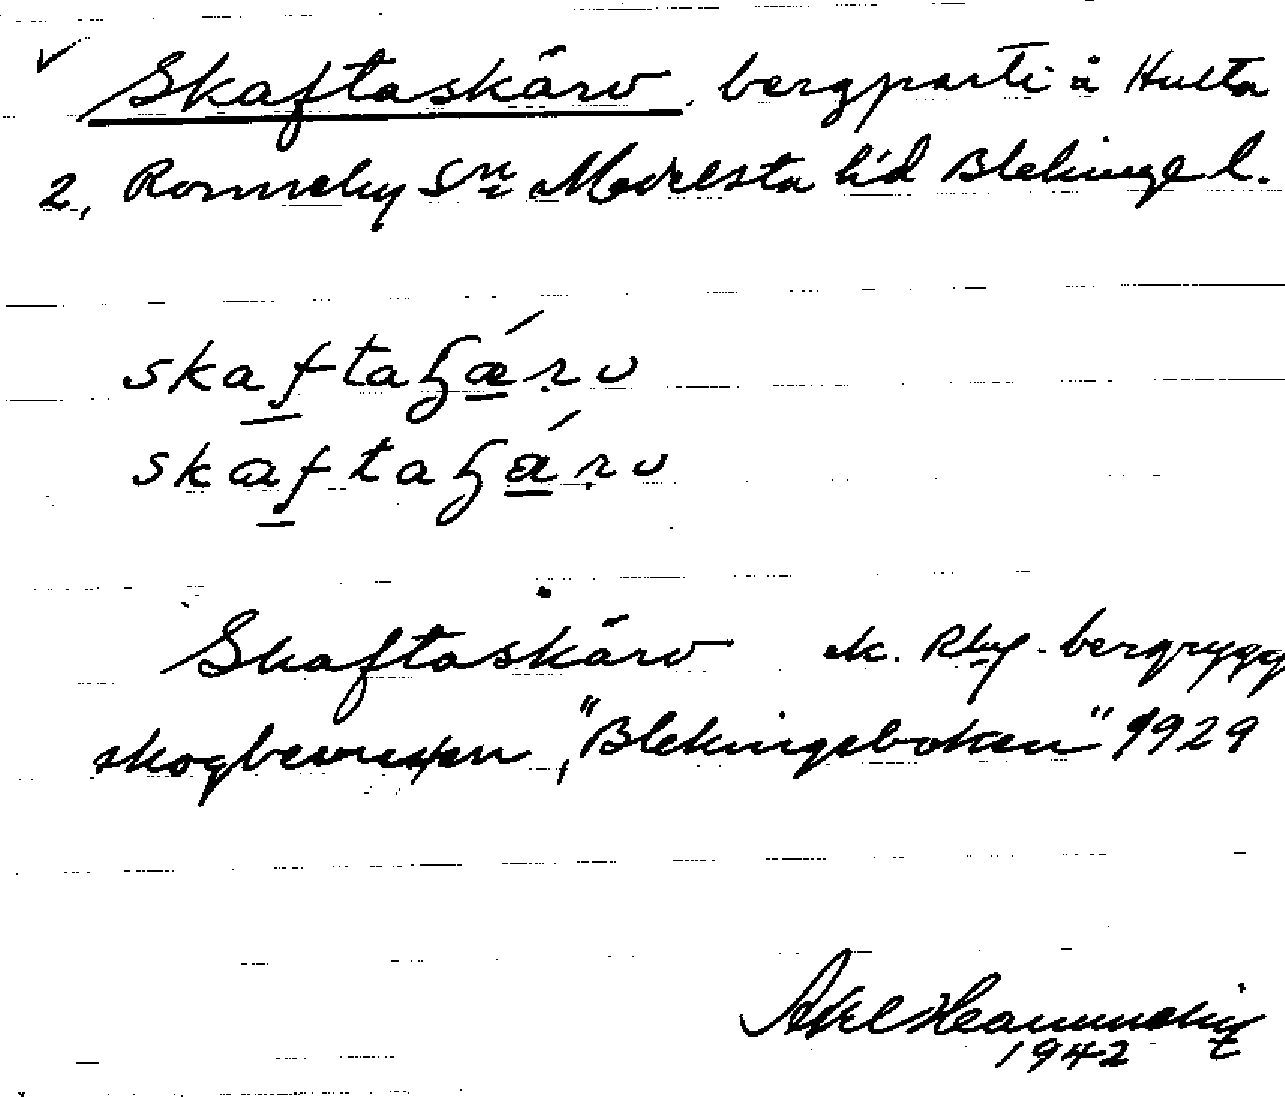 Skaftaskärv, bergparti å Hulta
2, Ronneby sn Medelsta hd Blekinge l.
skaftaɧǽ̱rv
skaftaɧá̱rv
Skaftaskärv ek. Rby. bergrygg
skogbevuxen, "Blekingeboken" 1929
1942